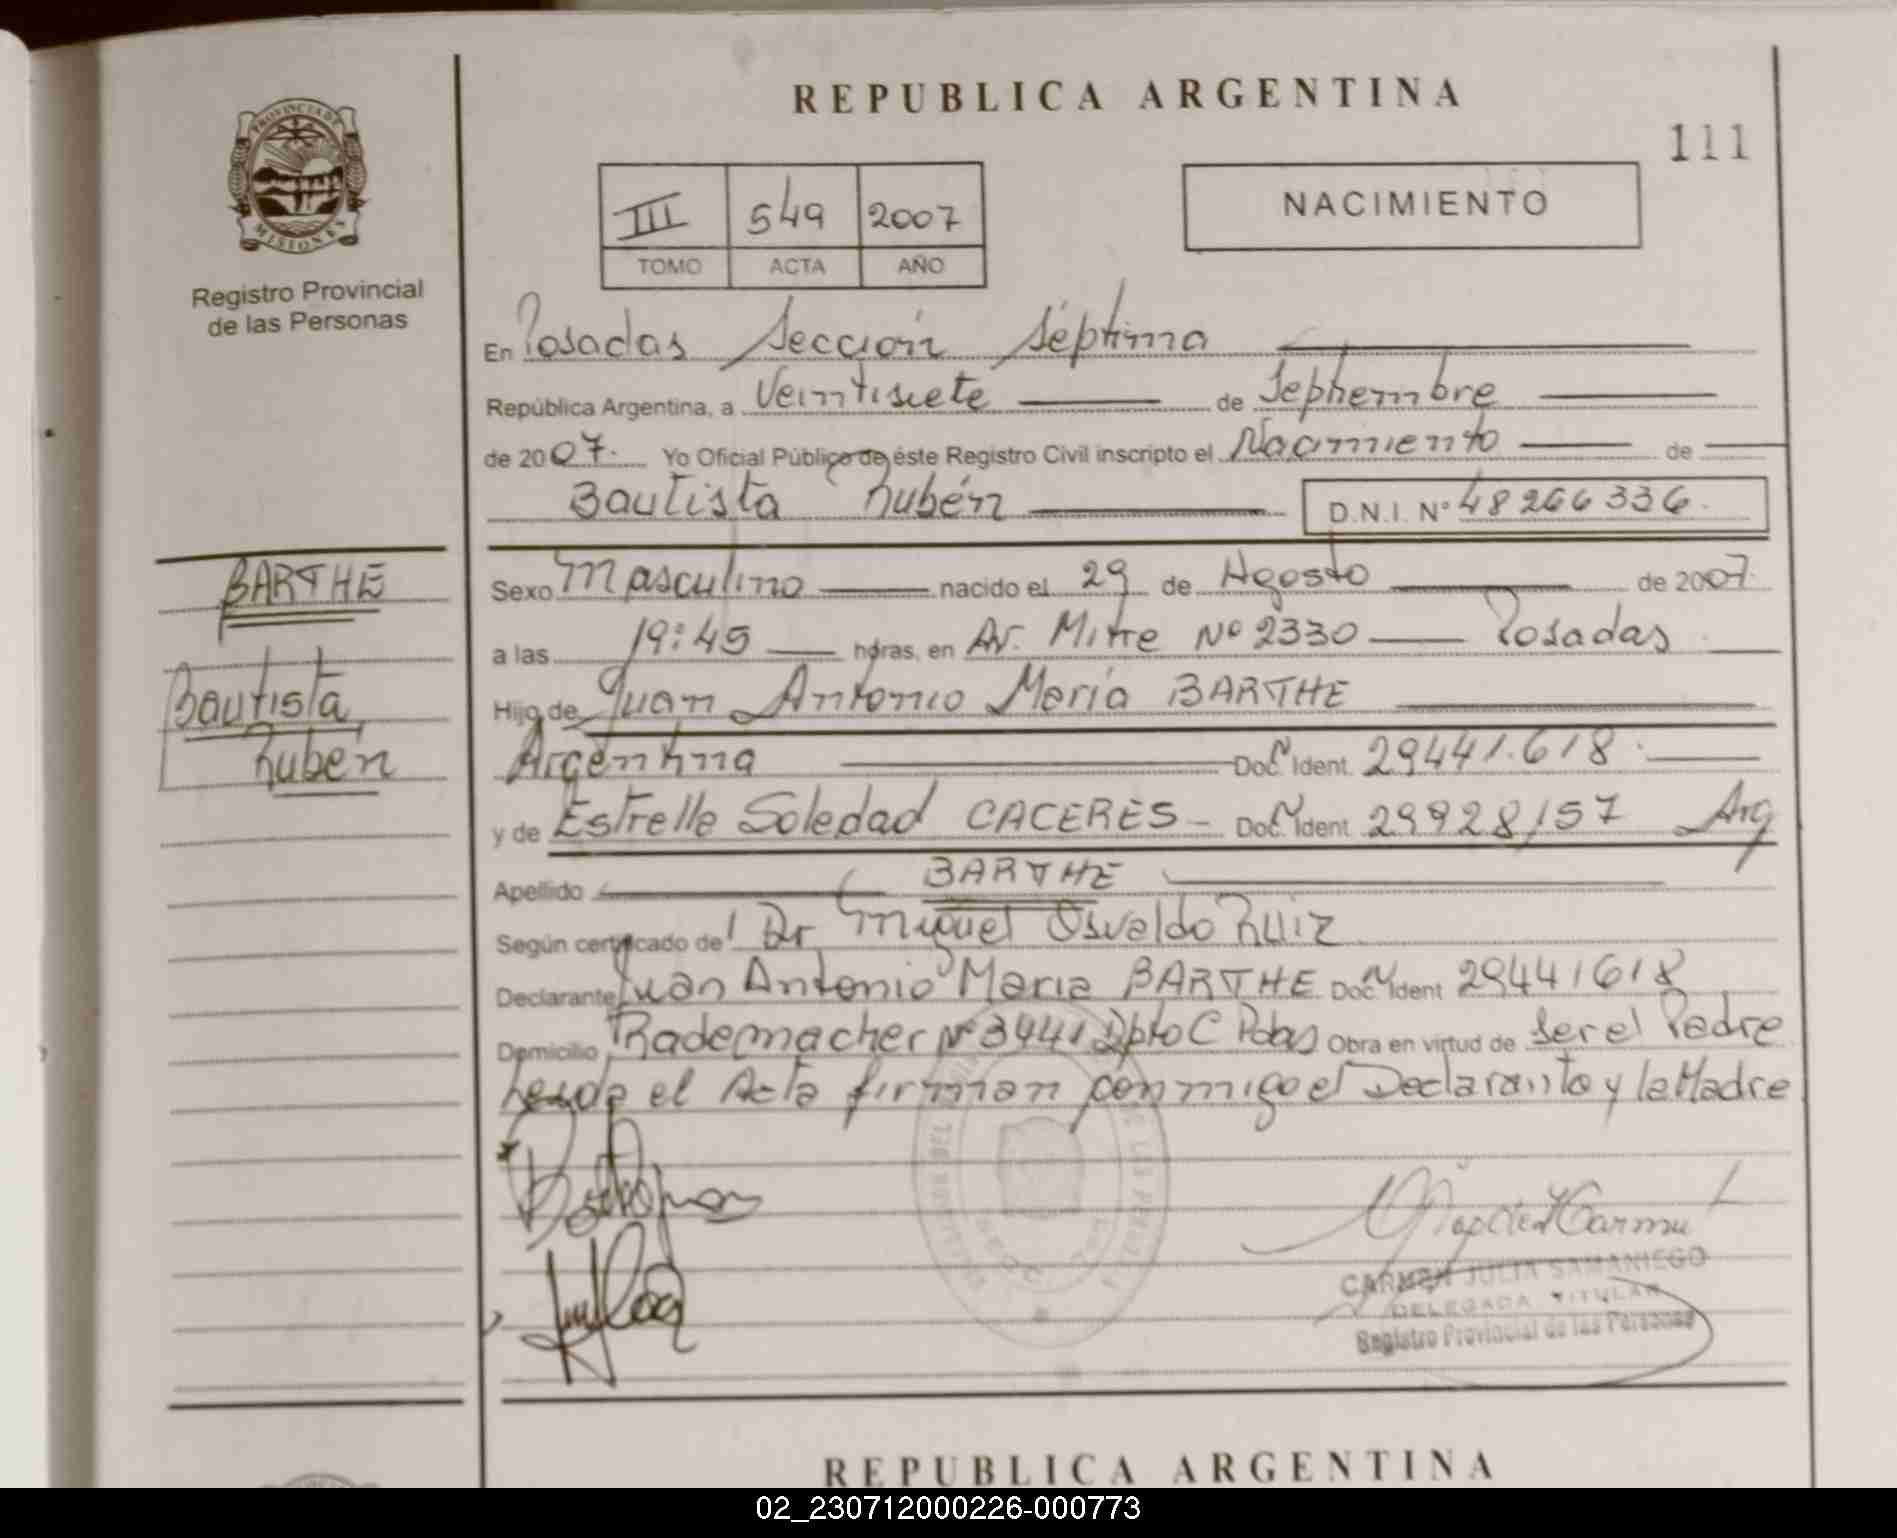 REPUBLICA ARGENTINA
111
PROVINCIA DE
MISIONES
Registro Provincial
de las Personas
III 549 2007
TOMO ACTA AÑO
NACIMIENTO
En Posadas Sección Séptima
República Argentina, a Veintisiete de Septiembre
de 2007. Yo Oficial Público de éste Registro Civil inscripto el Nacimiento de
Bautista Rubén D.N.I. Nº 48266336.
BARTHE
Bautista
Rubén
Sexo Masculino nacido el 29 de Agosto de 2007.
a las 19:45 horas, en Av. Mitre Nº 2330 Posadas
Hijo de Juan Antonio María BARTHE
Argentina Doc. Ident. 29441.618.
y de Estrella Soledad CACERES - Doc. Ident. 29928157 Arg
Apellido BARTHE
Según certificado del Dr Miguel Osvaldo Ruiz
Declarante Juan Antonio Maria BARTHE Doc. Ident 29441618
Domicilio Rademacher Nº 3441 Dpto C Pdas Obra en virtud de ser el Padre
Leída el Acta firman conmigo el Declarante y la Madre
CARMEN JULIA SAMANIEGO
DELEGADA TITULAR
Registro Provincial de las Personas
REPUBLICA ARGENTINA
02_230712000226-000773